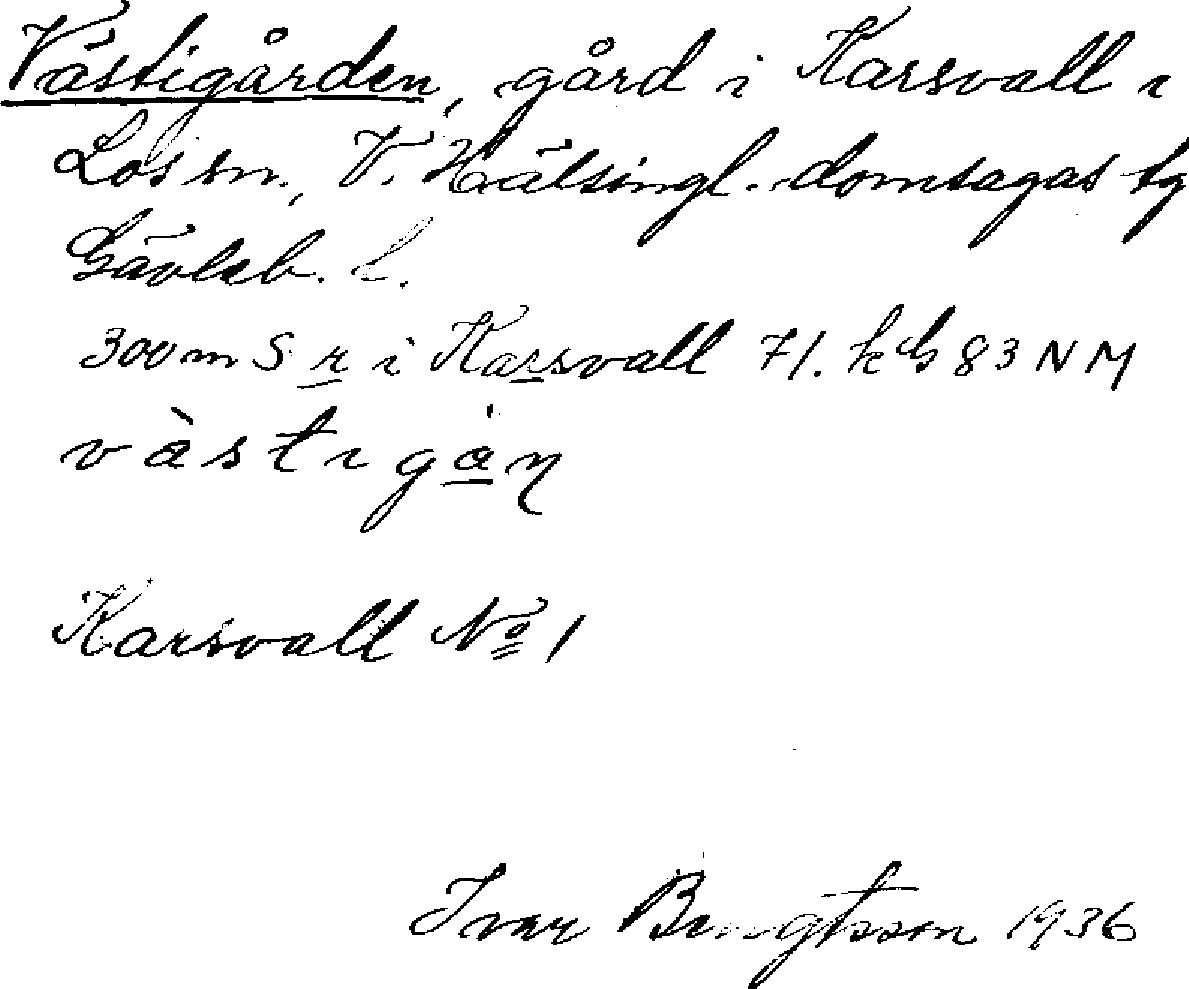 Västigården, gård i Karsvall i
Los sn., V. Hälsingl. domsagas tg
Gävleb. l.
300 m S r i Karsvall 71. k G 83 N M
västigån
Karsvall No 1
Ivar Bengtsson 1936